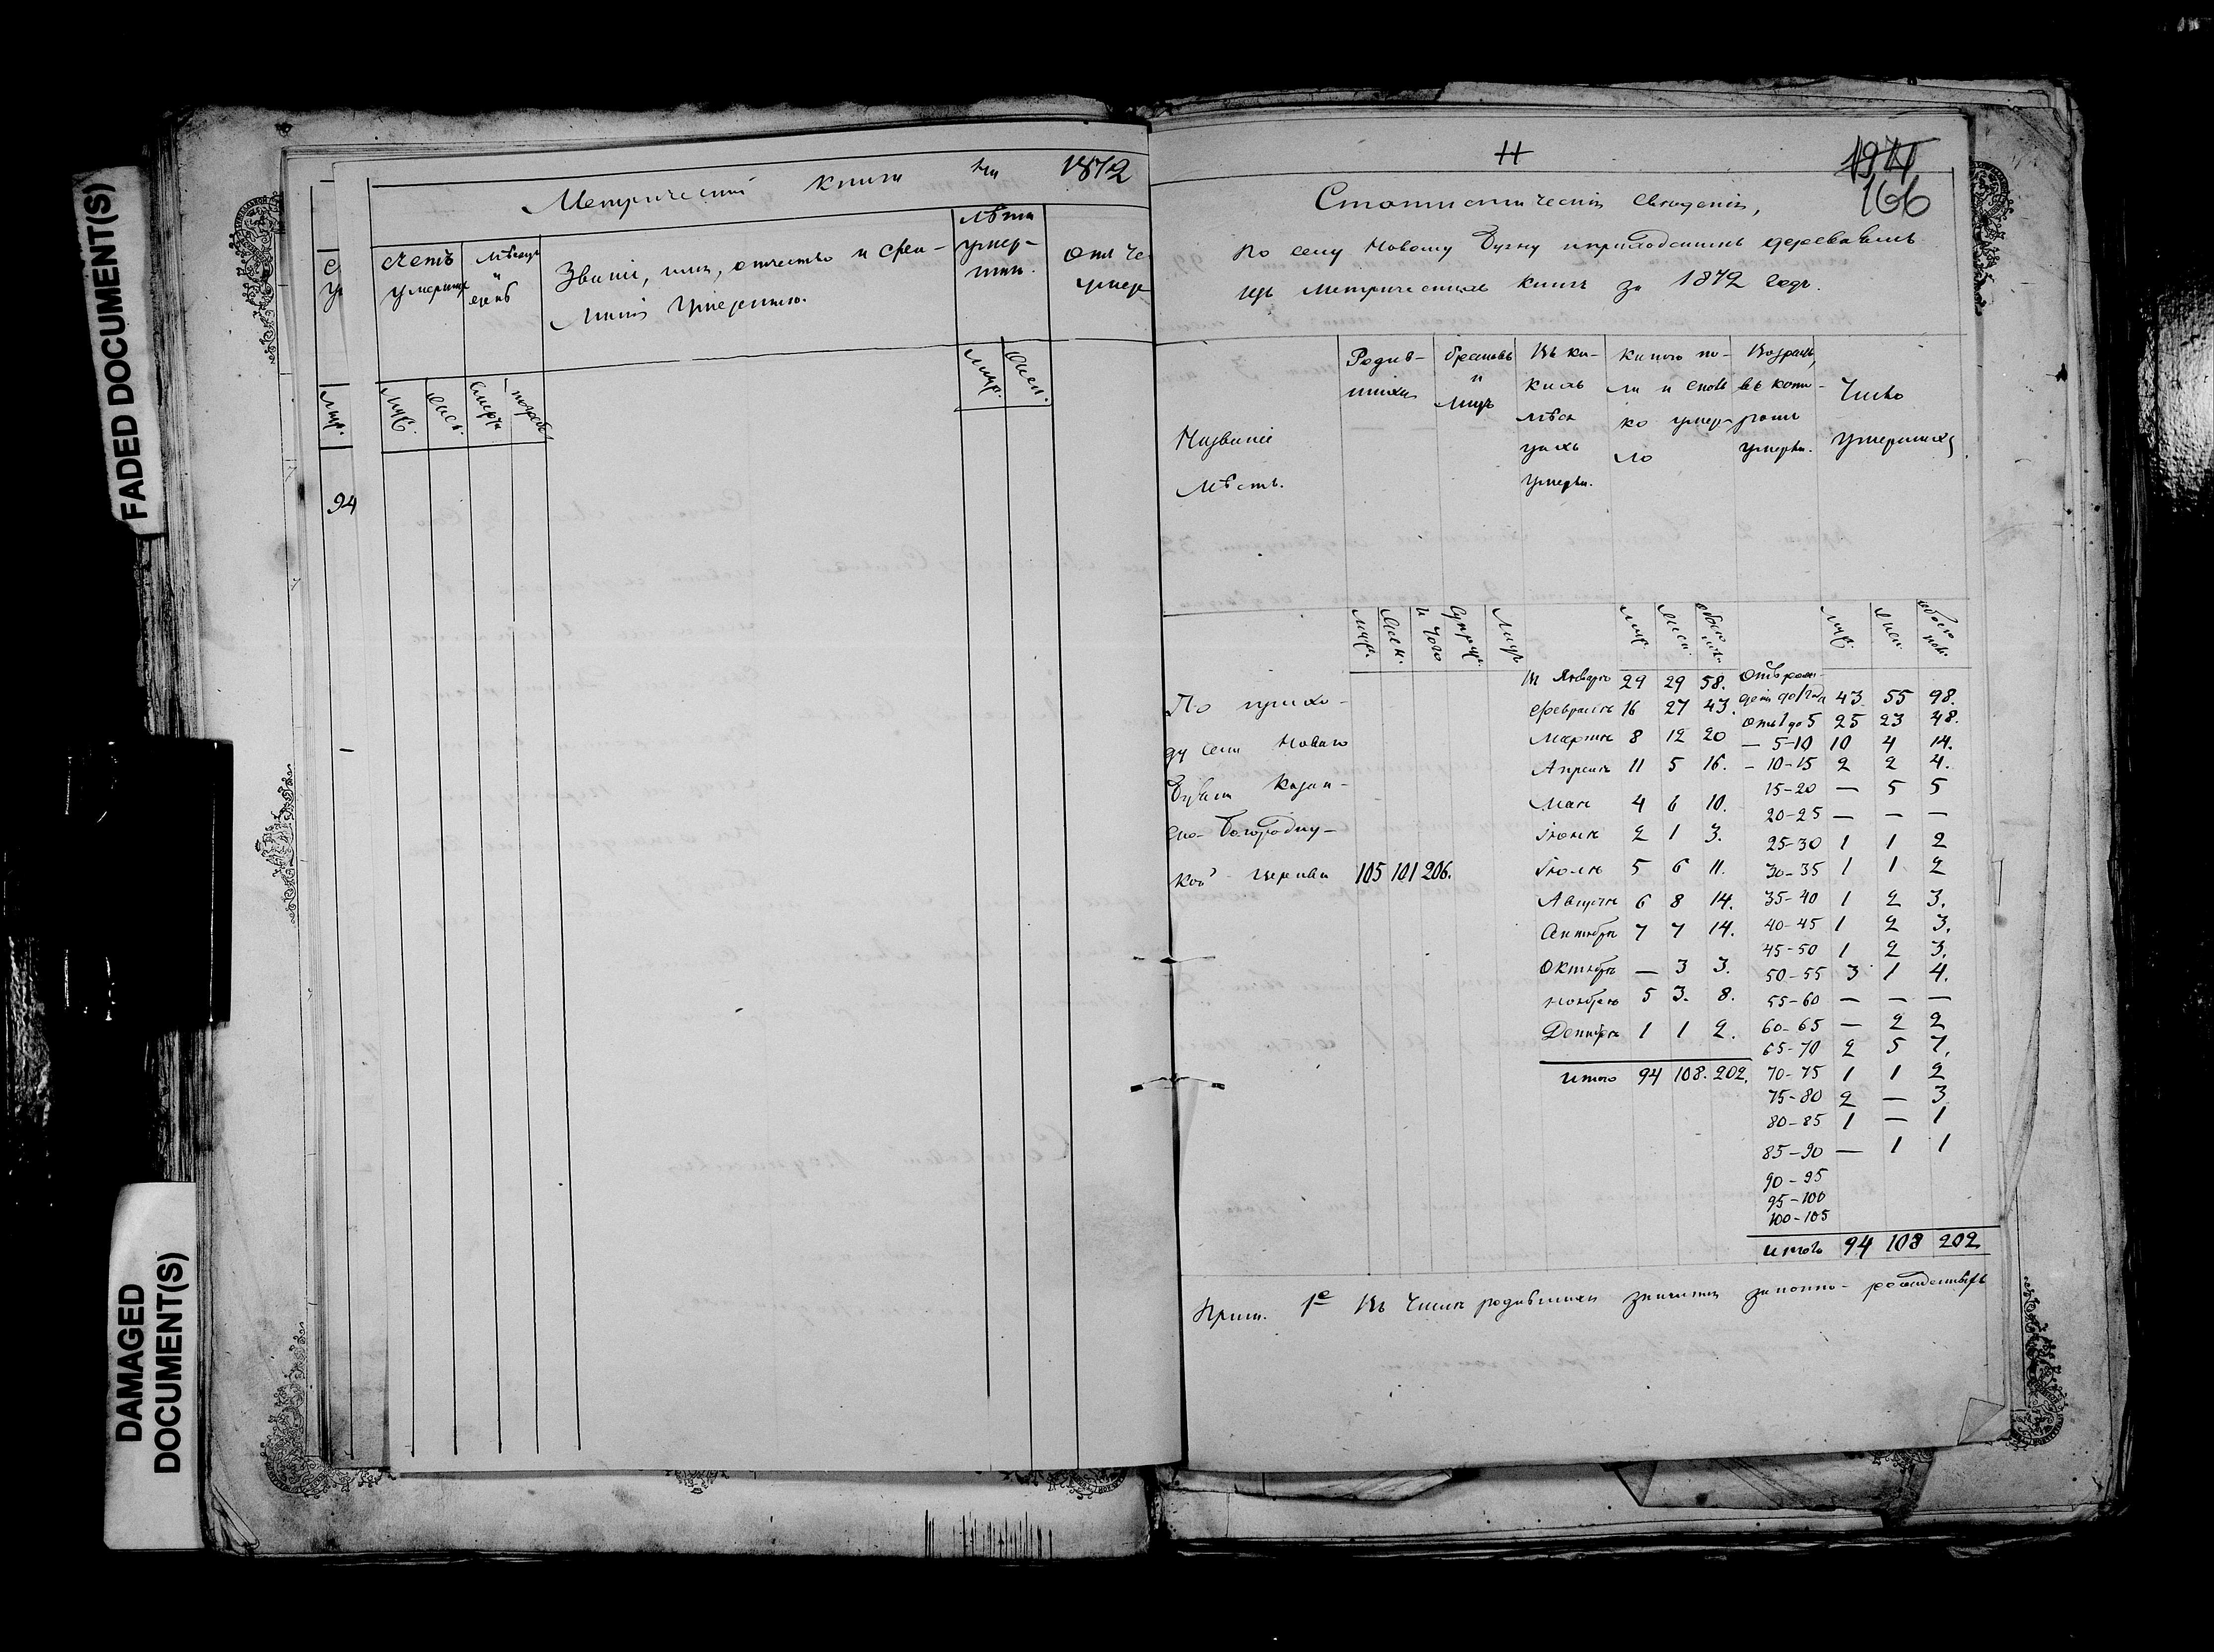 FADED DOCUMENT(S)
DAMAGED
DOCUMENT(S)
Метрической книги на 1872
Счетъ умершихъ
Мѣсяцъ и день
Званіе, имя, отчество и фамилія умершаго.
Лѣта умершаго.
Отъ че
умер
Муж.
Муж.
Женс.
Смерти
погреб.
Муж.
Жен.
94
—
Н
166
Статистическія свѣденія,
по селу Новому Буяну и приходскимъ деревнямъ
изъ метрическихъ книгъ за 1872 годъ.
Названіе мѣстъ.
Родившихся
браковъ и лицъ
Въ какихъ мѣсяцахъ умерли.
какого пола и сколько умерло
Возрастъ, въ которомъ умерли.
Число умершихъ
Муж. Жен. Итого Супруж. Лицъ Муж. Жен. обоего пола Муж. Жен. обоего пол.
По приходу села Новаго Буяна Казанско-Богородицкой церкви 105 101 206.
въ Январѣ 29 29 58.
Февралѣ 16 27 43.
Мартѣ 8 12 20
Апрелѣ 11 5 16.
Маѣ 4 6 10.
Іюнѣ 2 1 3.
Іюлѣ 5 6 11.
Августѣ 6 8 14.
Сентябрѣ 7 7 14.
Октябрѣ — 3 3.
Ноябрѣ 5 3. 8.
Декабрѣ 1 1 2.
итого 94 108. 202.
Отъ рожденія до 1 года 43 55 98.
отъ 1 до 5 25 23 48.
— 5-10 10 4 14.
— 10-15 2 2 4.
15-20 — 5 5
20-25 — — —
25-30 1 1 2
30-35 1 1 2
35-40 1 2 3.
40-45 1 2 3.
45-50 1 2 3.
50-55 3 1 4.
55-60 — — —
60-65 — 2 2
65-70 2 5 7.
70-75 1 1 2
75-80 2 — 3
80-85 1 — 1
85-90 — 1 1
90-95
95-100
100-105
итого 94 108 202
Прим. 1е Въ числѣ родившихся значится законно-рожденныхъ